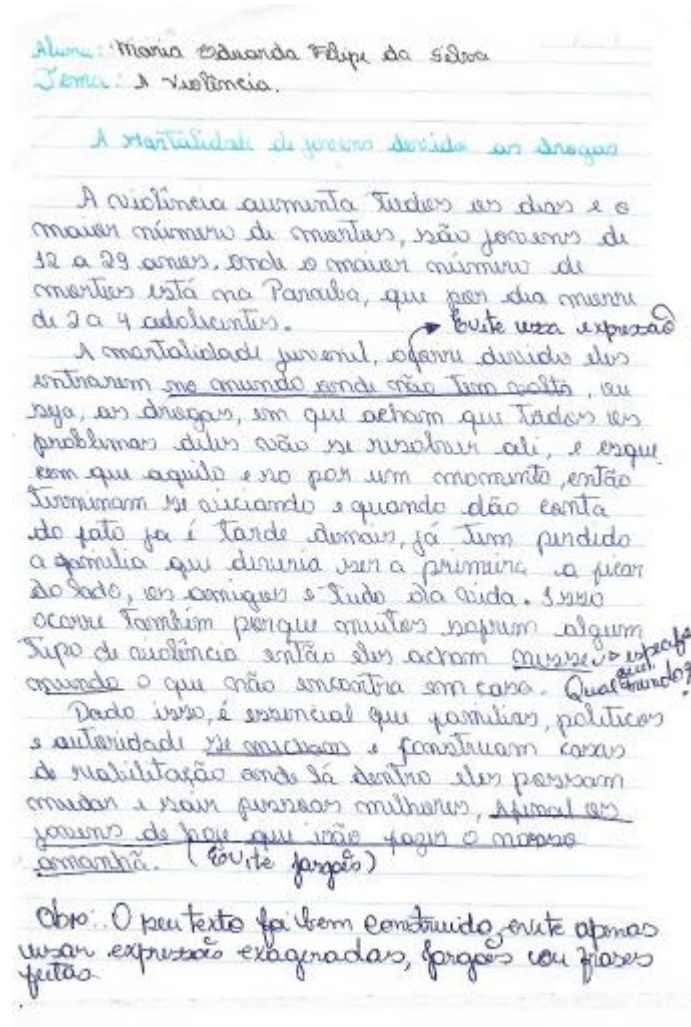 Aluna: Maria Eduarda Felipe da Silva
Tema: A Violência.
A Mortalidade de jovens devido as drogas
A violência aumenta todos os dias e o
maior número de mortes, são jovens de
12 a 29 anos. Onde o maior número de
mortes está na Paraíba, que por dia morre
de 2 a 4 adolicentes.
Evite essa expressão
A mortalidade juvenil, oferre devido eles
entrarem no mundo onde não tem volta, ou
seja, as drogas, em que acham que todos os
problemas deles vão se resolver ali, e esque
cem que aquilo e so por um momento, então
terminam se viciando e quando dão conta
do fato ja é tarde demais, já tem perdido
a familia que deveria ser a primeira a ficar
do lado, os amigos e tudo da vida. Isso
ocorre também porque muitos sofrem algum
tipo de violência então eles acham nesse
especifique
mundo o que não encontra em casa. Qual mundo?
Dado isso, é essencial que familias, politicos
e autoridade se mecham e construam casas
de reabilitação onde lá dentro eles possam
mudar e sair pessoas milhores, afinal os
jovens de hoje que irão fazer o nosso
amanhã. (Evite jargões)
Obs: O seu texto foi bem construido, evite apenas
usar expressões exageradas, jargões ou frases
feitas